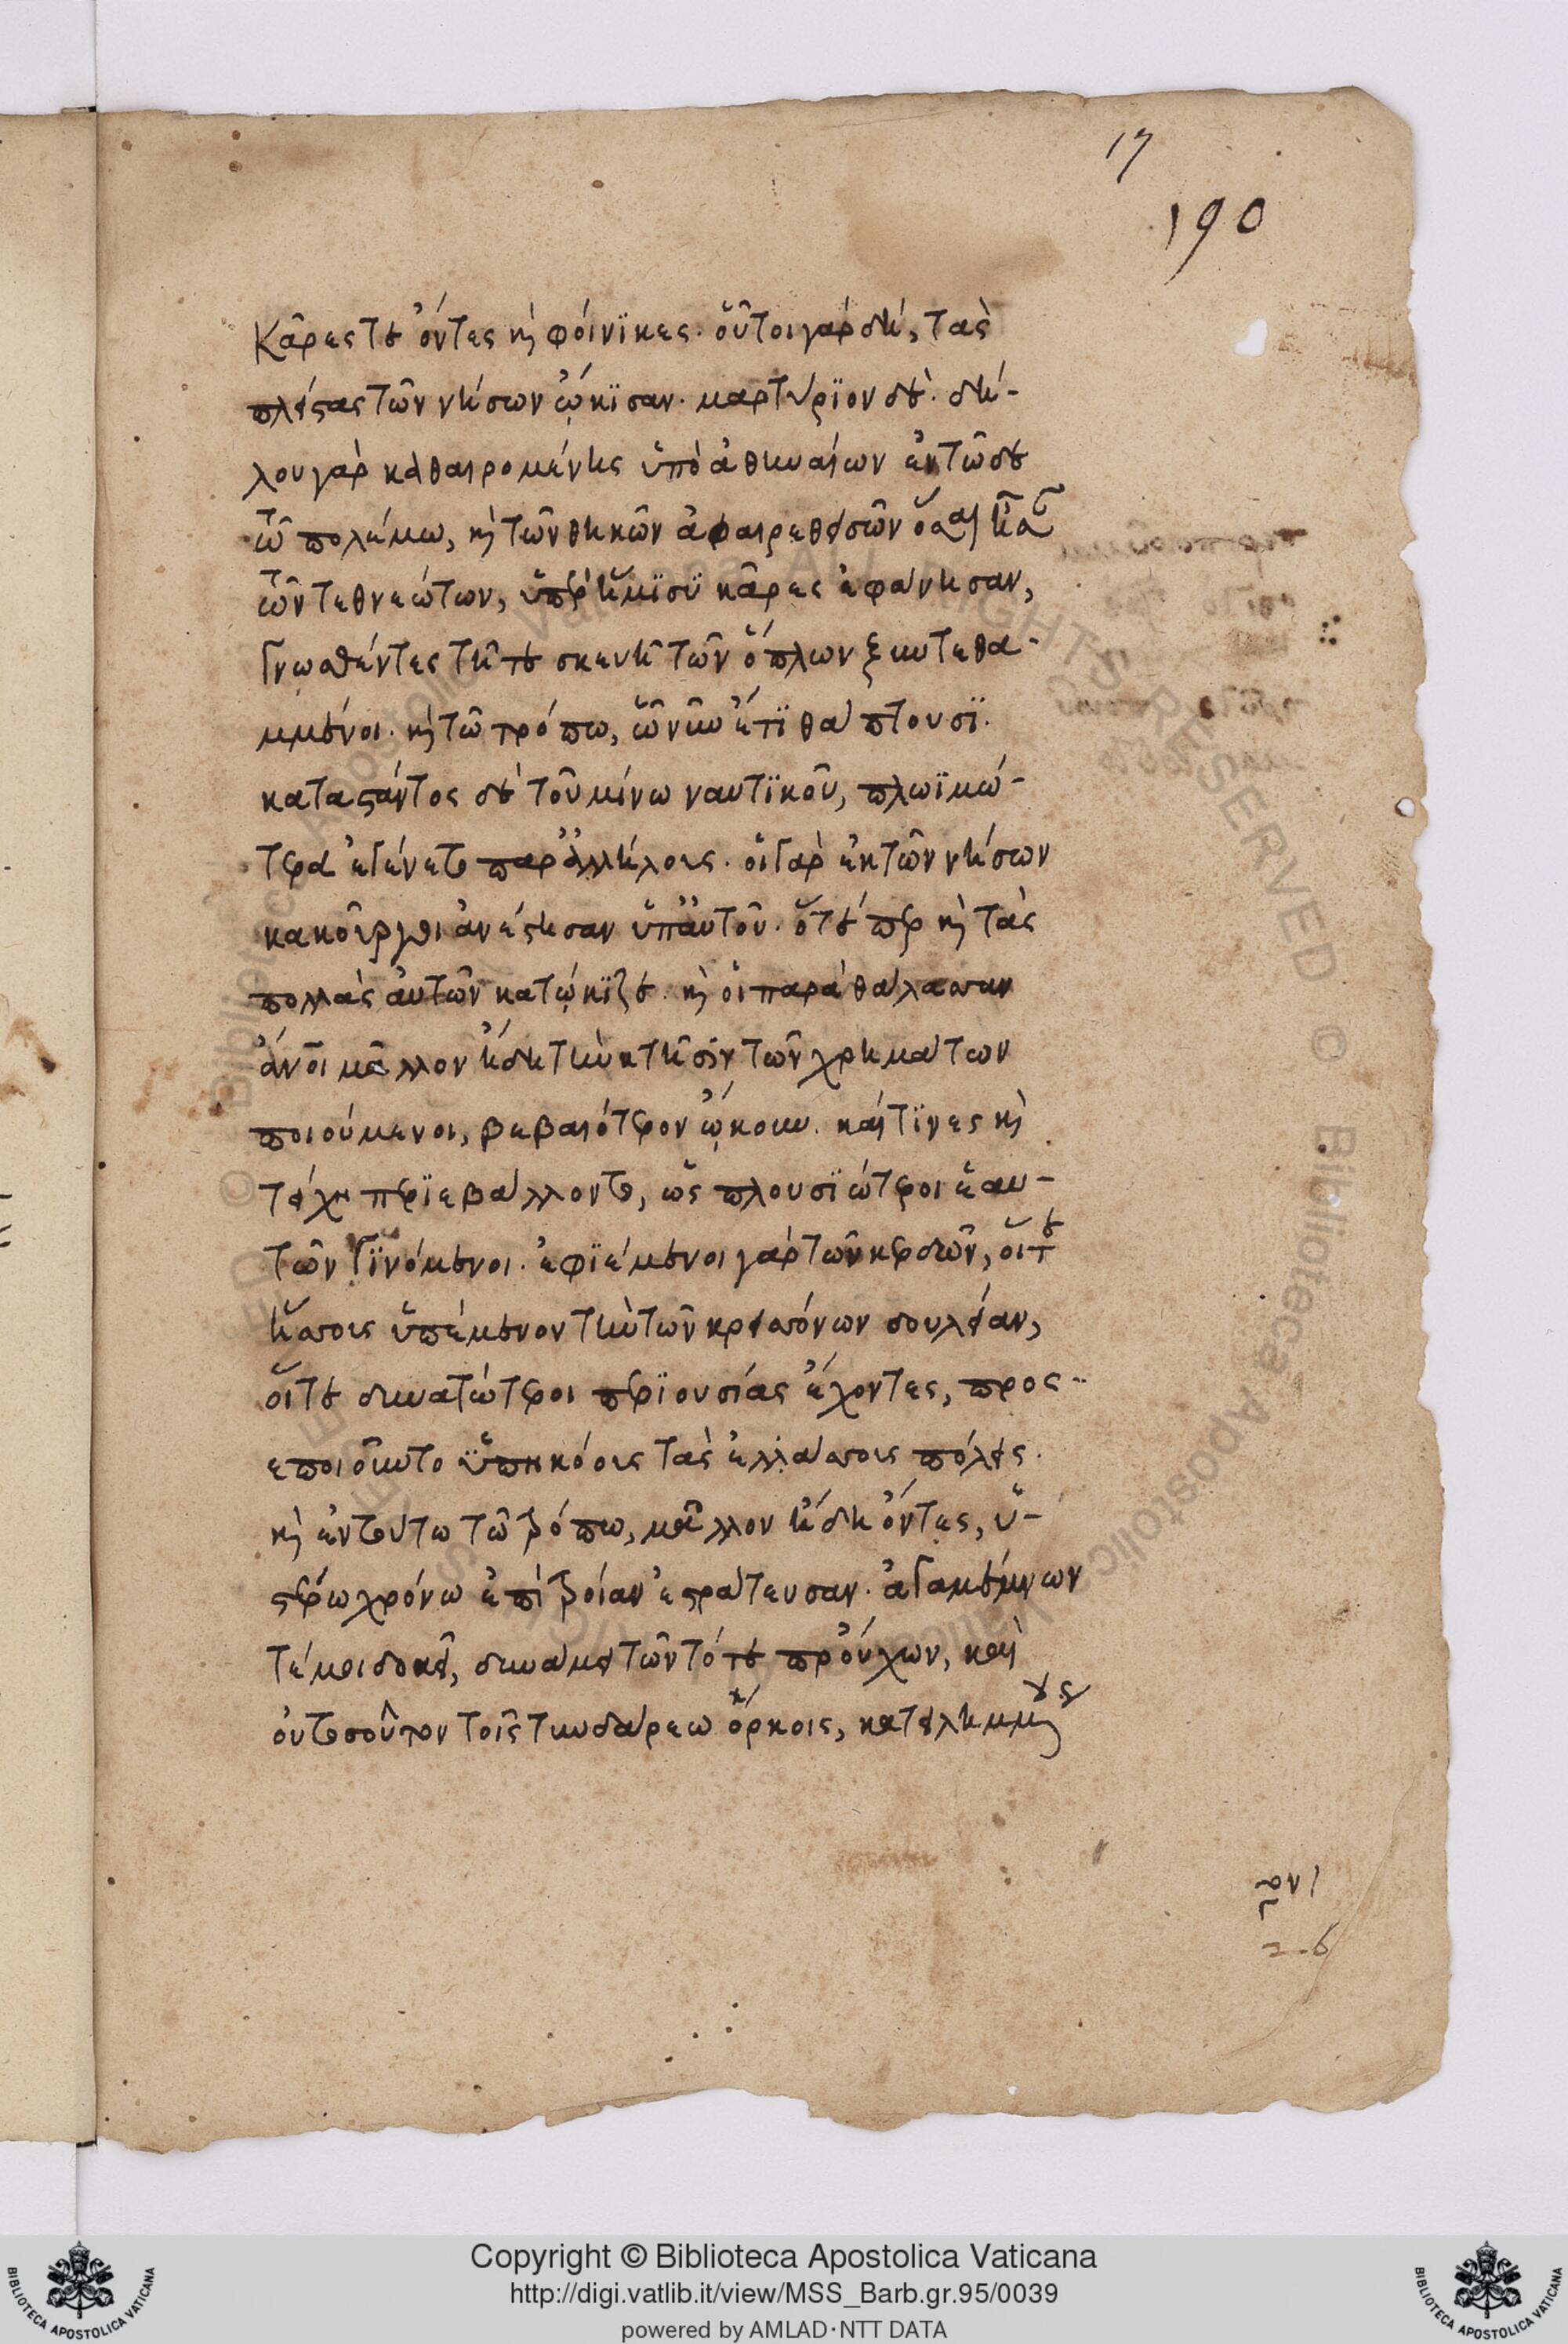 17
190
Κᾶρες τε ὄντες καὶ φοίνϊκες. οὗτοι γὰρ δὴ, τὰς
πλείστας τῶν νήσων ᾤκϊσαν. μαρτύρϊον δέ. δή-
λου γὰρ καθαιρομένης ὑπὸ ἀθηναίων ἐν τῶδε
τῶ πολέμω, καὶ τῶν θηκῶν ἀφαιρεθεισῶν ὅσαι ἦσαν
τῶν τεθνεώτων, ὑπὲρ ἥμϊσϋ κᾶρες ἐφάνησαν,
γνωσθέντες τῆ τε σκευῆ τῶν ὅπλων ξυντεθα-
μμένοι. καὶ τῶ τρόπω, ὧ νῦν ἔτϊ θάπτουσϊ.
καταστάντος δὲ τοῦ μίνω ναυτϊκοῦ, πλωϊμώ-
τερα ἐγένετο παρ' ἀλλήλους. οἱ γὰρ ἐκ τῶν νήσων
κακοῦργοι ἀνέστησαν ὑπ' αὐτοῦ. ὅτε περ καὶ τὰς
πολλὰς αὐτῶν κατῴκϊζε. καὶ οἱ παρὰ θάλασσαν
ἄνοι μᾶλλον ἤδη τὴν κτῆσϊν τῶν χρημάτων
ποιούμενοι, βεβαιότερον ᾤκουν. καί τϊνες καὶ
τείχη περϊεβάλλοντο, ὡς πλουσϊώτεροι ἑαυ-
τῶν γϊνόμενοι. ἐφϊέμενοι γὰρ τῶν κερδῶν, οἵ τε
ἥσσους ὑπέμενον τὴν τῶν κρεισσόνων δουλείαν,
οἵ τε δυνατώτεροι περϊουσίας ἔχοντες, προς-
εποιοῦντο ὑπηκόους τὰς ἐλλάσσους πόλεις.
καὶ ἐν τούτω τῶ τρόπω, μᾶλλον ἤδη ὄντες, ὑ-
στέρω χρόνω ἐπὶ τροίαν ἐστράτευσαν. ἀγαμέμνων
τέ μοι δοκεῖ, δυνάμει τῶν τότε προύχων, καὶ
οὐ τοσοῦτον τοῖς τυνδάρεω ὅρκοις, κατειλημμένους